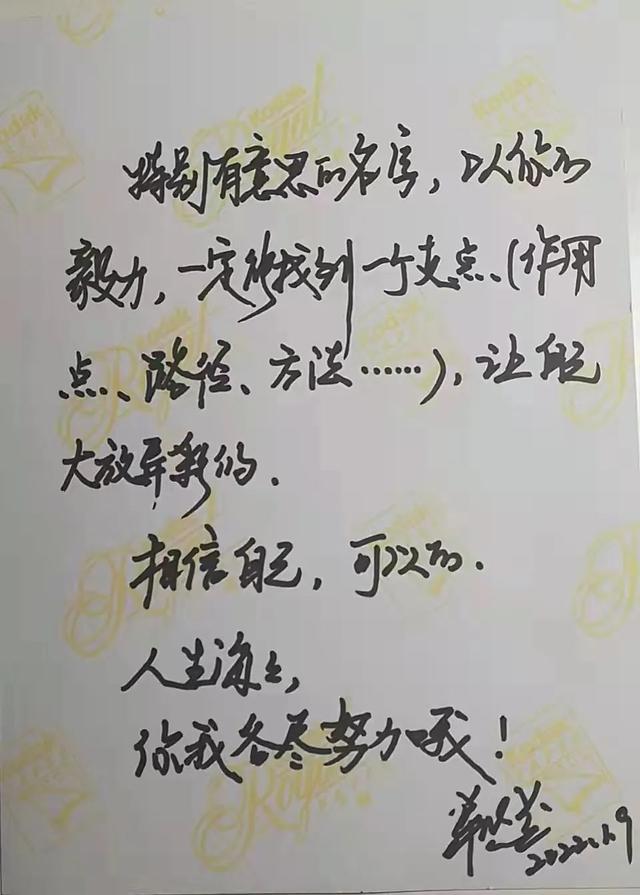 特别有意思的名字，以你的
毅力，一定能找到一个支点、(作用
点、路径、方法……)，让自己
大放异彩的.
相信自己，可以的.
人生海上，
你我各尽努力哦！
2022.1.9
Kodak
Royal